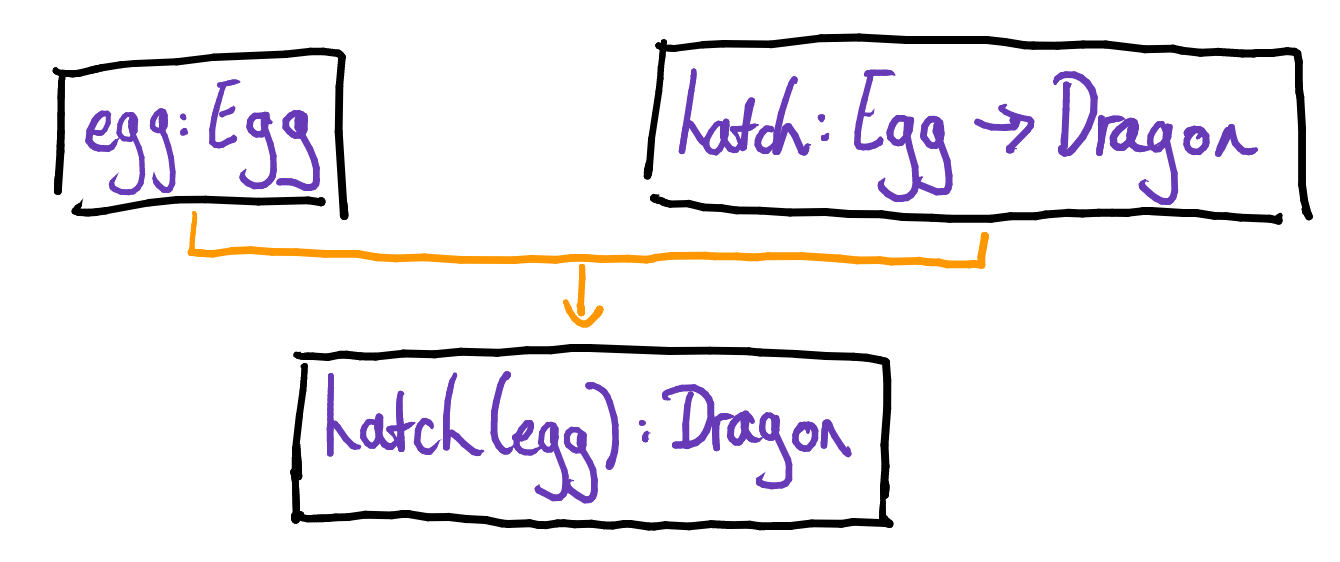 egg: Egg
hatch: Egg → Dragon
hatch(egg): Dragon